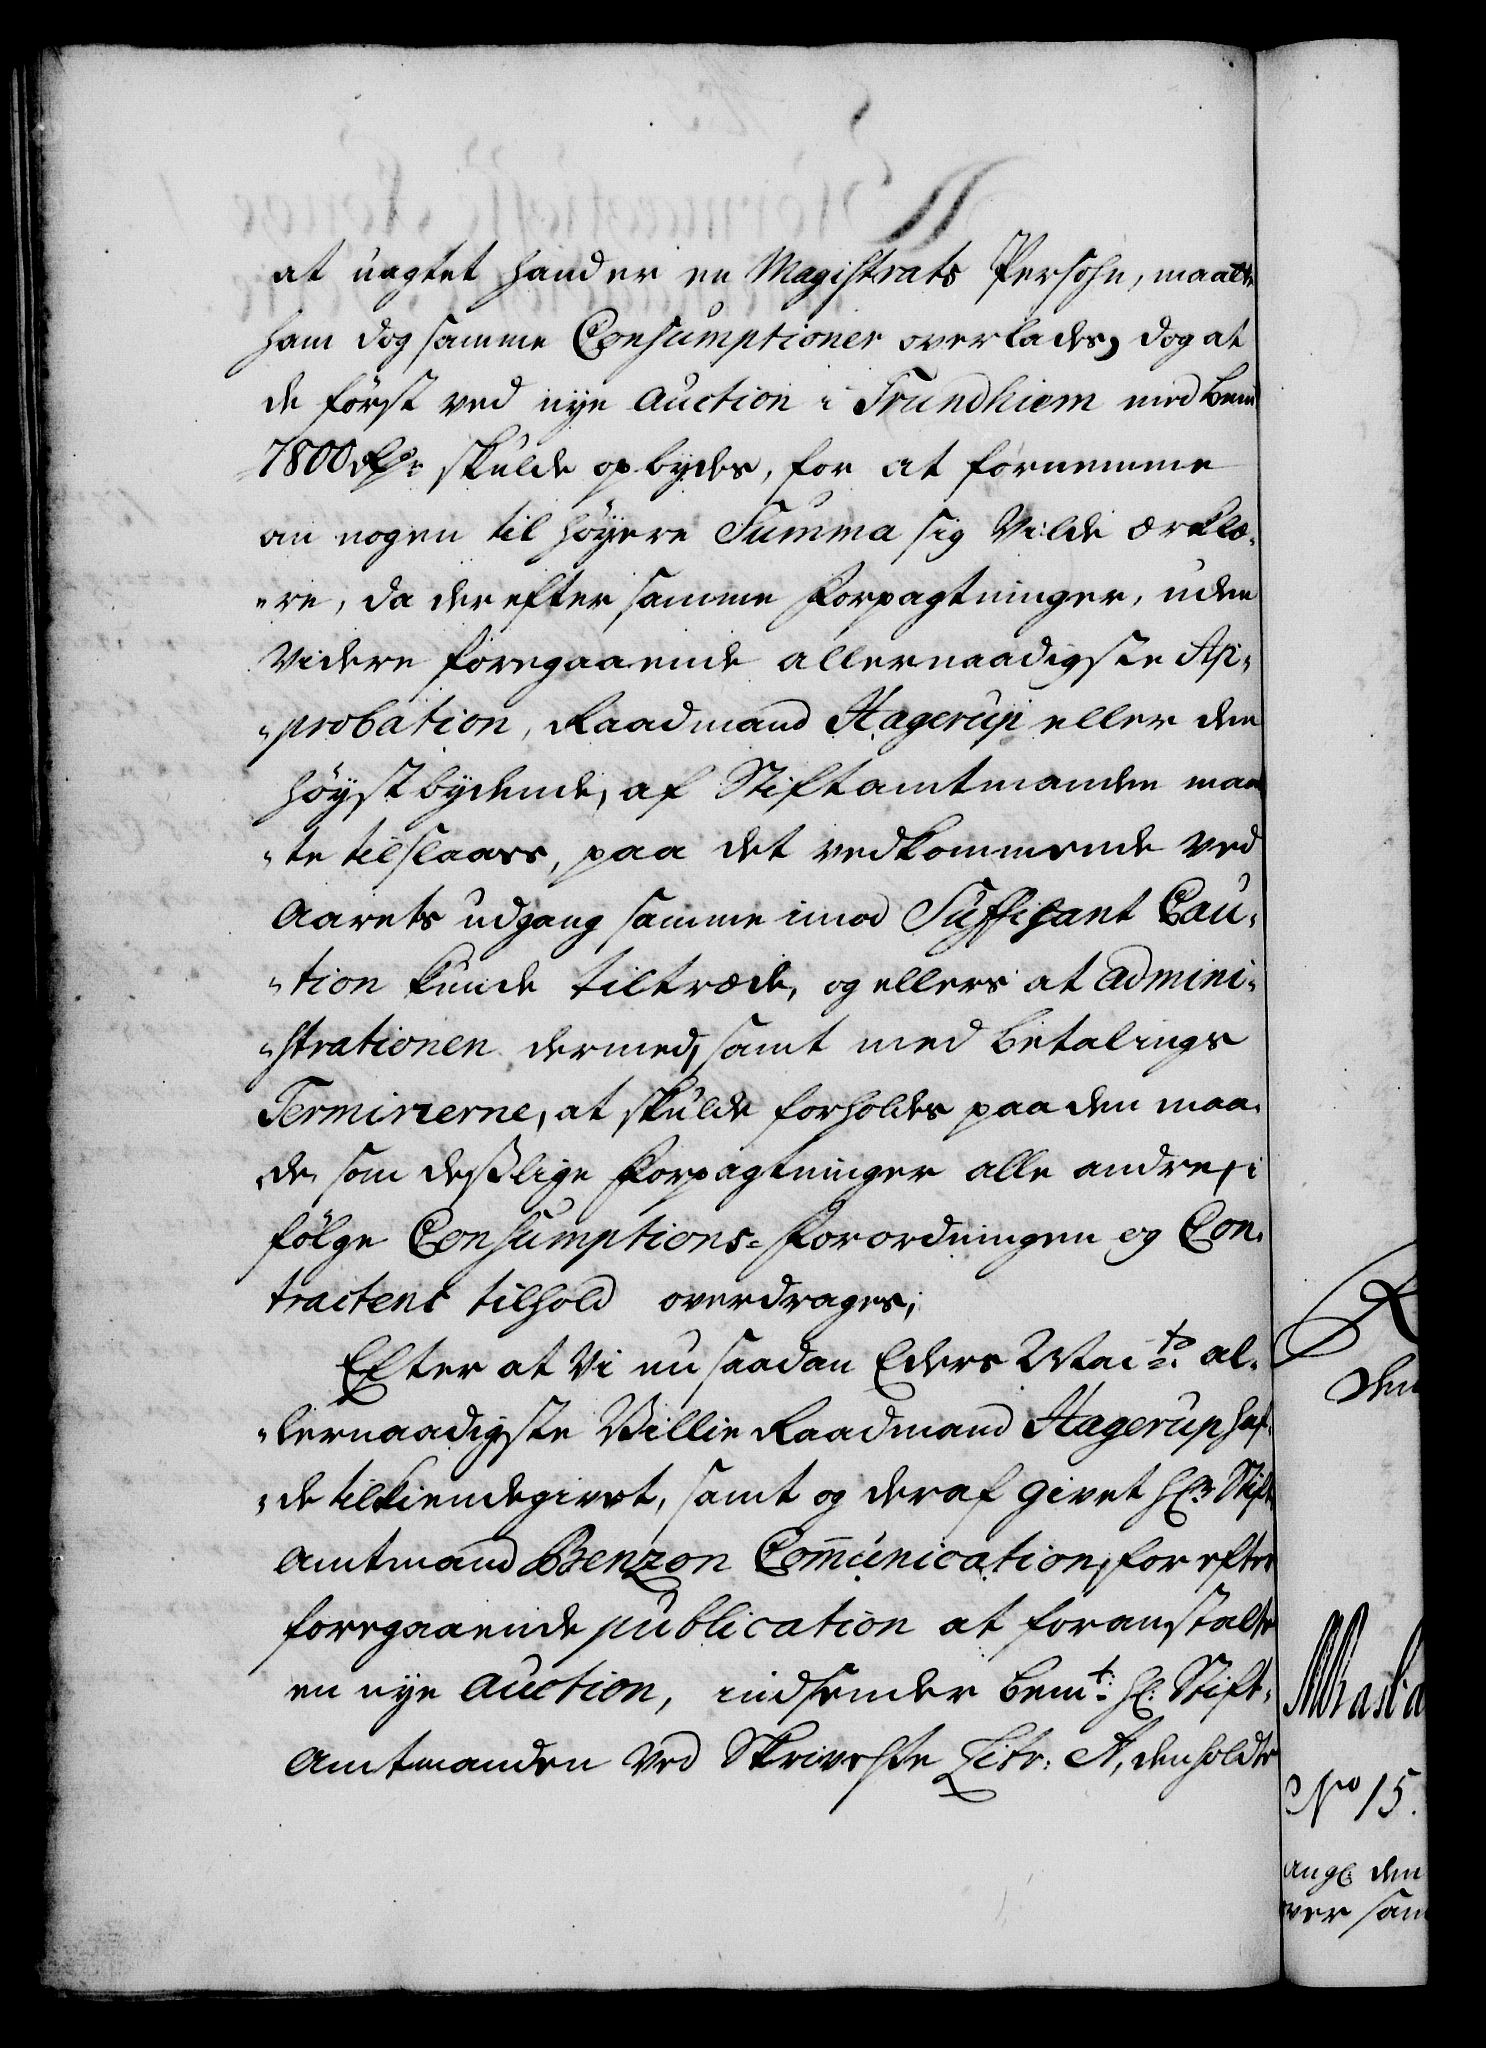 at uagtet hand er en Magistrats Persohn, maatte
ham dog samme Consumptioner overlades, dog at
de först ved nye Auction i Trundhiem med bem
7800 Rdr skulde opbydes, for at fornemme
om nogen til höyere Summa sig vilde erklæ„
„re, da derefter samme Forpagtninger, uden
videre foregaaende allernaadigste Ap„
„probation, Raadmand Hagerup eller den
höystbydende, af Stiftamtmanden maa
„te tilslaaes, paa det vedkommende ved
Aarets udgang samme imod Suffisant Cau„
„tion kunde tiltræde, og ellers at admini„
„strationen dermed, samt med betalings
Terminerne, at skulde forholdes paa den maa„
„de, som deslige Forpagtninger alle andre, i
fölge Consumptions=Forordningen og Con„
tractens tilhold overdrages,
Efter at Vi nu saadan Eders Maits: al„
„lernaadigste Villie Raadmand Hagerup haf„
„de tilkiendegivet, samt og deraf givet Hr: Stift
Amtmand Benzon Com̄unication, for efter
foregaaende publication at foranstalte
en nye Auction, indsender bemt: Hr: Stift„
Amtmanden ved Skrivelse Litr: A, den holdte
No 15.
ang: den
ver sam